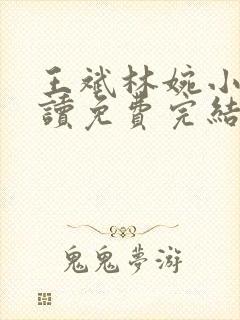 王斌林婉小
讀免費完結
鬼鬼夢游